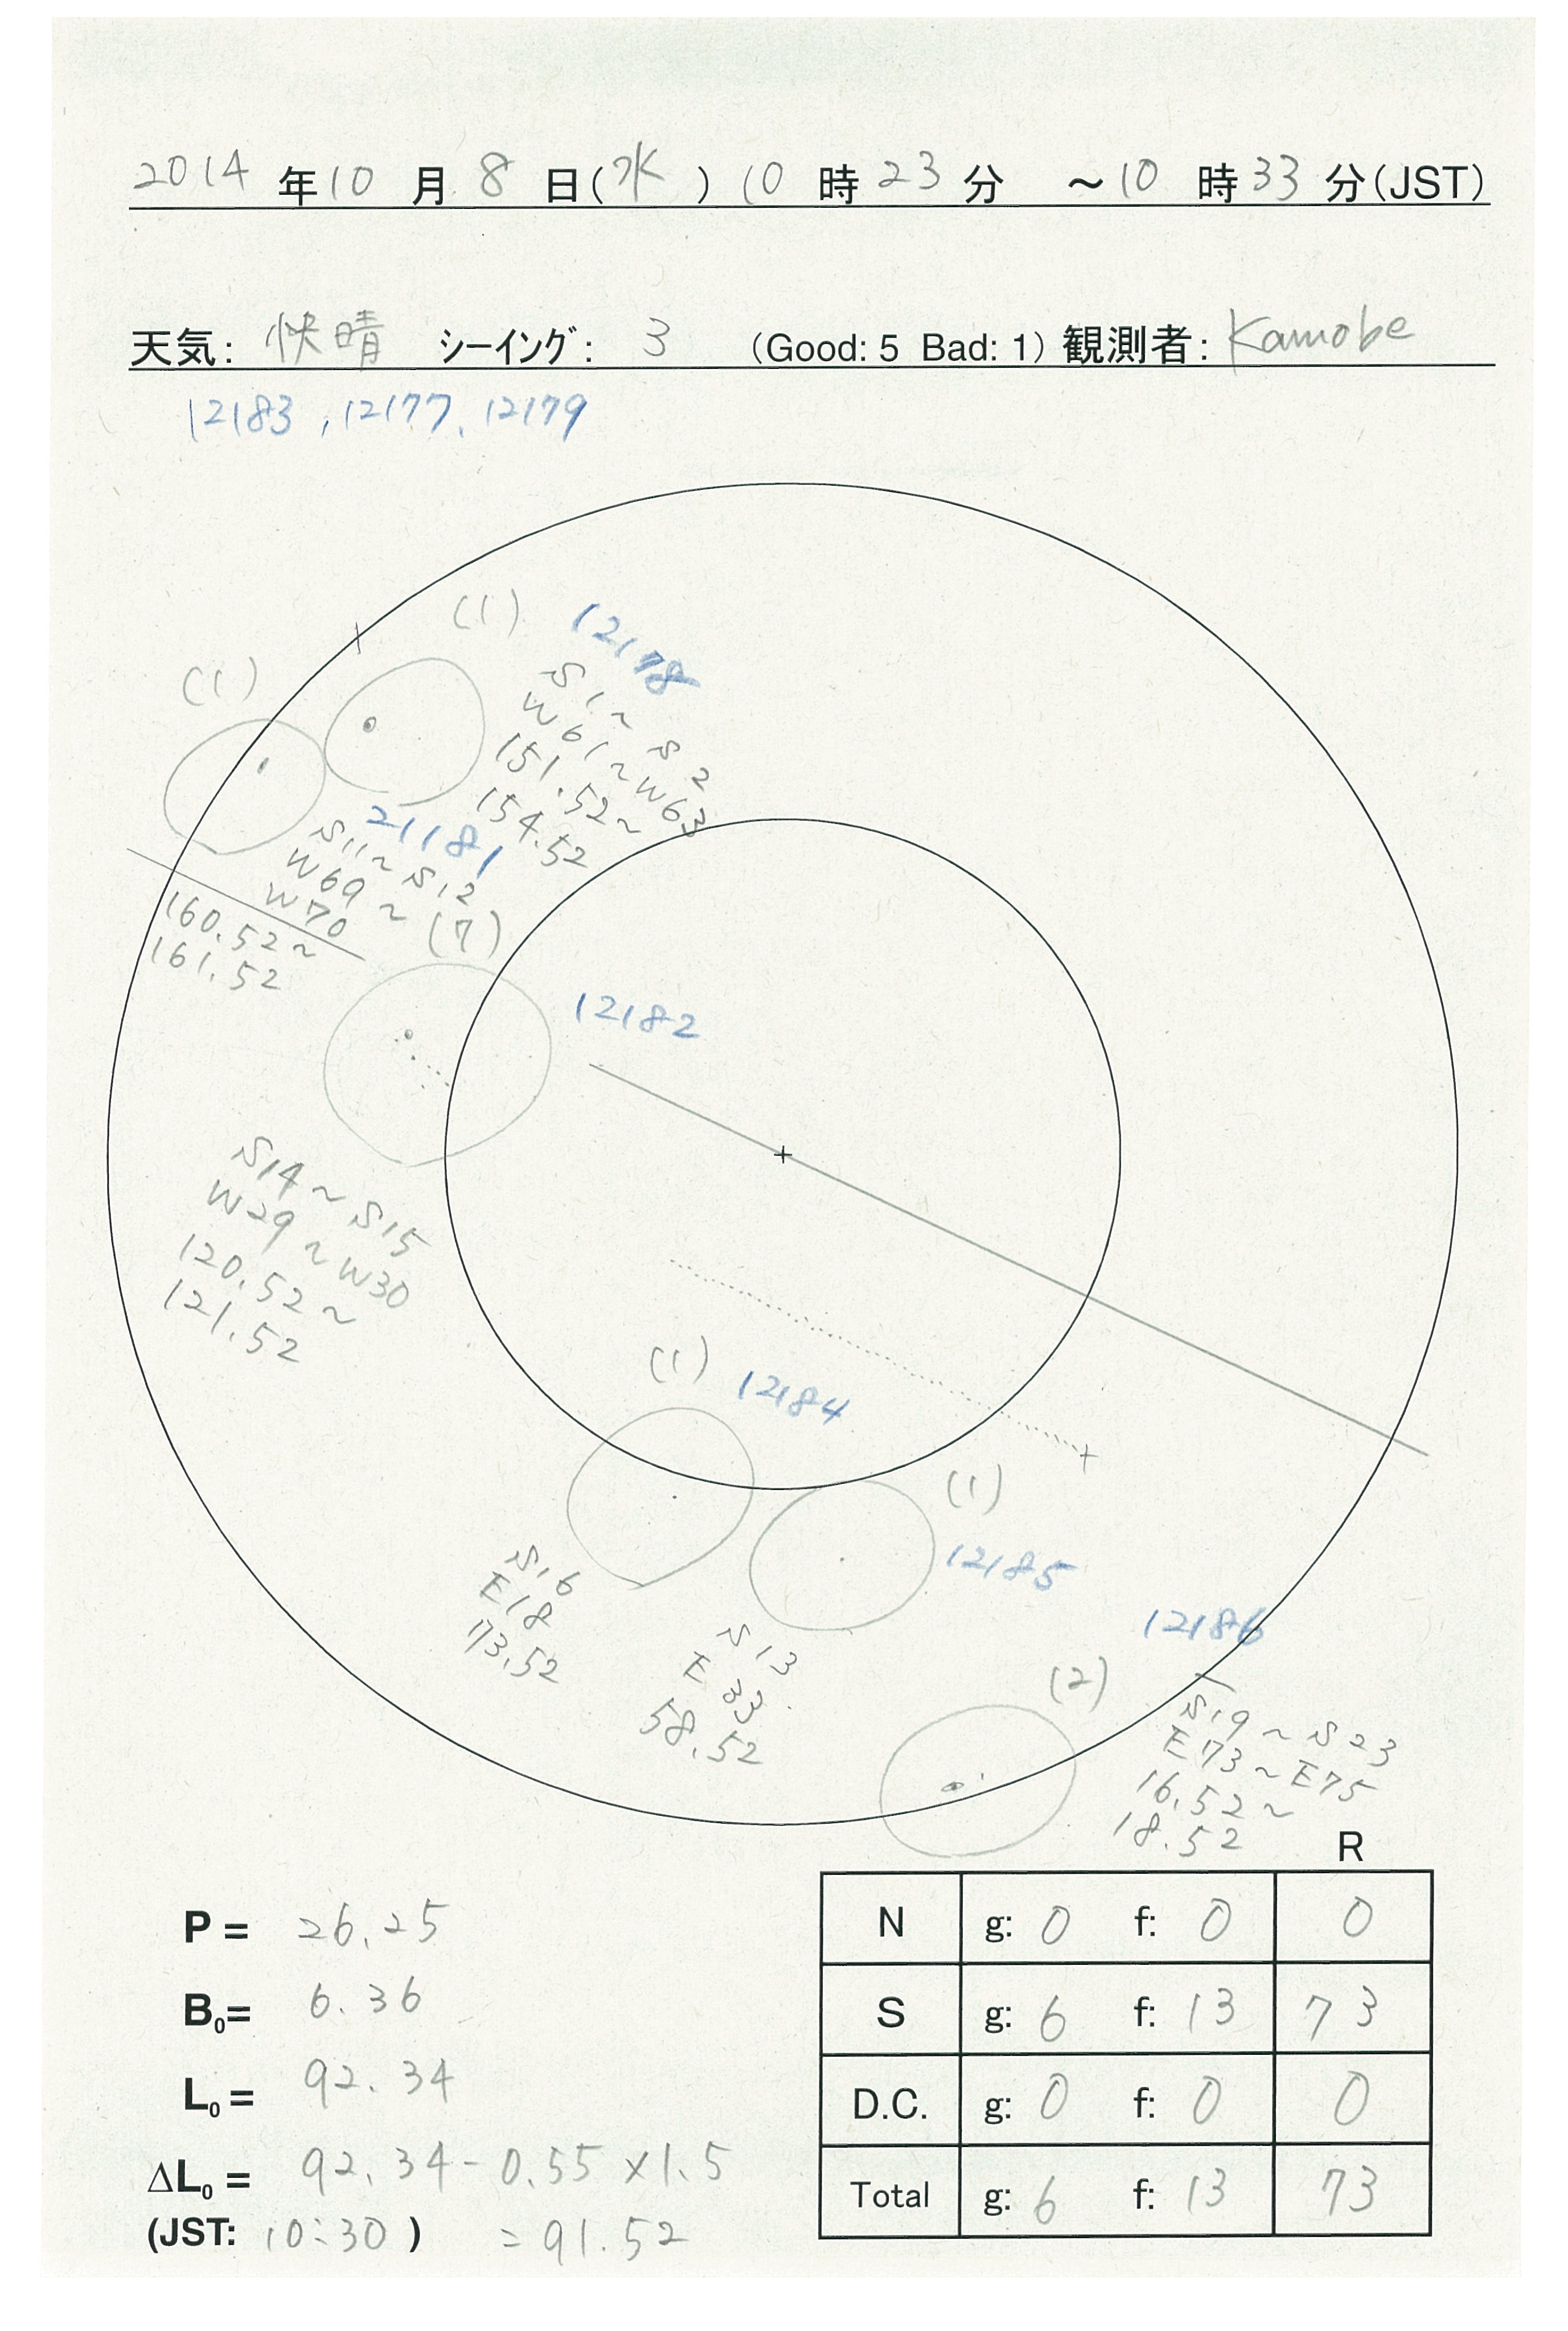 2014 年 10 月 8 日(水) 10 時 23 分 ～10 時 33 分(JST)
天気: 快晴 シーイング: 3 (Good: 5 Bad: 1) 観測者: Kamobe
12183, 12177, 12179
(1) 12178
S1~S2
W61~W63
151.52~
154.52
(1)
21181
S11~S12
W69~
W70
160.52~
161.52
(7)
12182
S14~S15
W29~W30
120.52~
121.52
(1) 12184
S16
E18
73.52
(1)
12185
S13
E33
58.52
12186
(2)
S19~S23
E73~E75
16.52~
18.52
P = 26.25
B0= 6.36
L0 = 92.34
ΔL0 = 92.34-0.55×1.5
(JST: 10:30) =91.52
R
N g: 0 f: 0 0
S g: 6 f: 13 73
D.C. g: 0 f: 0 0
Total g: 6 f: 13 73